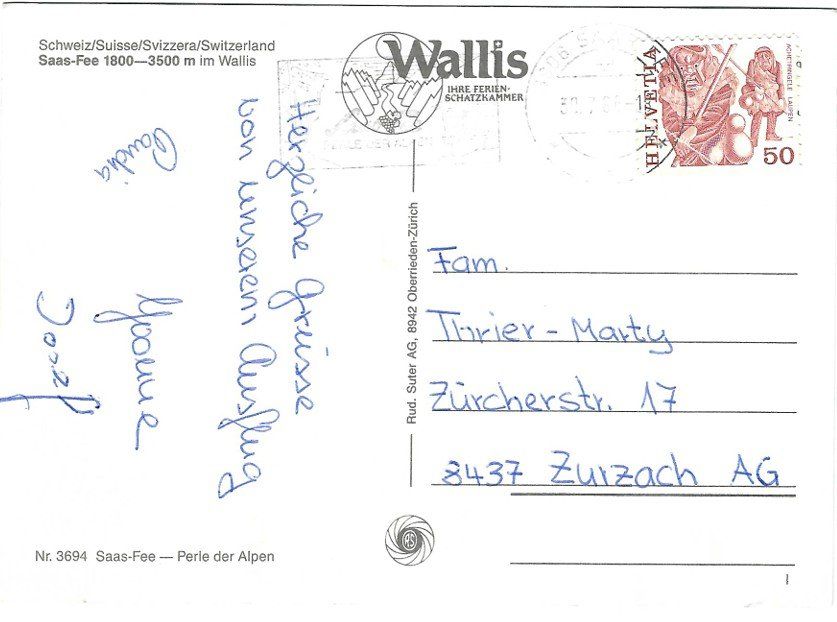 Schweiz/Suisse/Svizzera/Switzerland
Saas-Fee 1800—3500 m im Wallis
Wallis
IHRE FERIEN-
SCHATZKAMMER
HELVETIA
ACHETRINGELE LAUPEN
50
Herzliche Grüsse
von unserem Ausflug
Claudia
Yvonne
Josef
Rud. Suter AG, 8942 Oberrieden-Zürich
Fam.
Thrier-Marty
Zürcherstr. 17
8437 Zurzach AG
Nr. 3694 Saas-Fee — Perle der Alpen